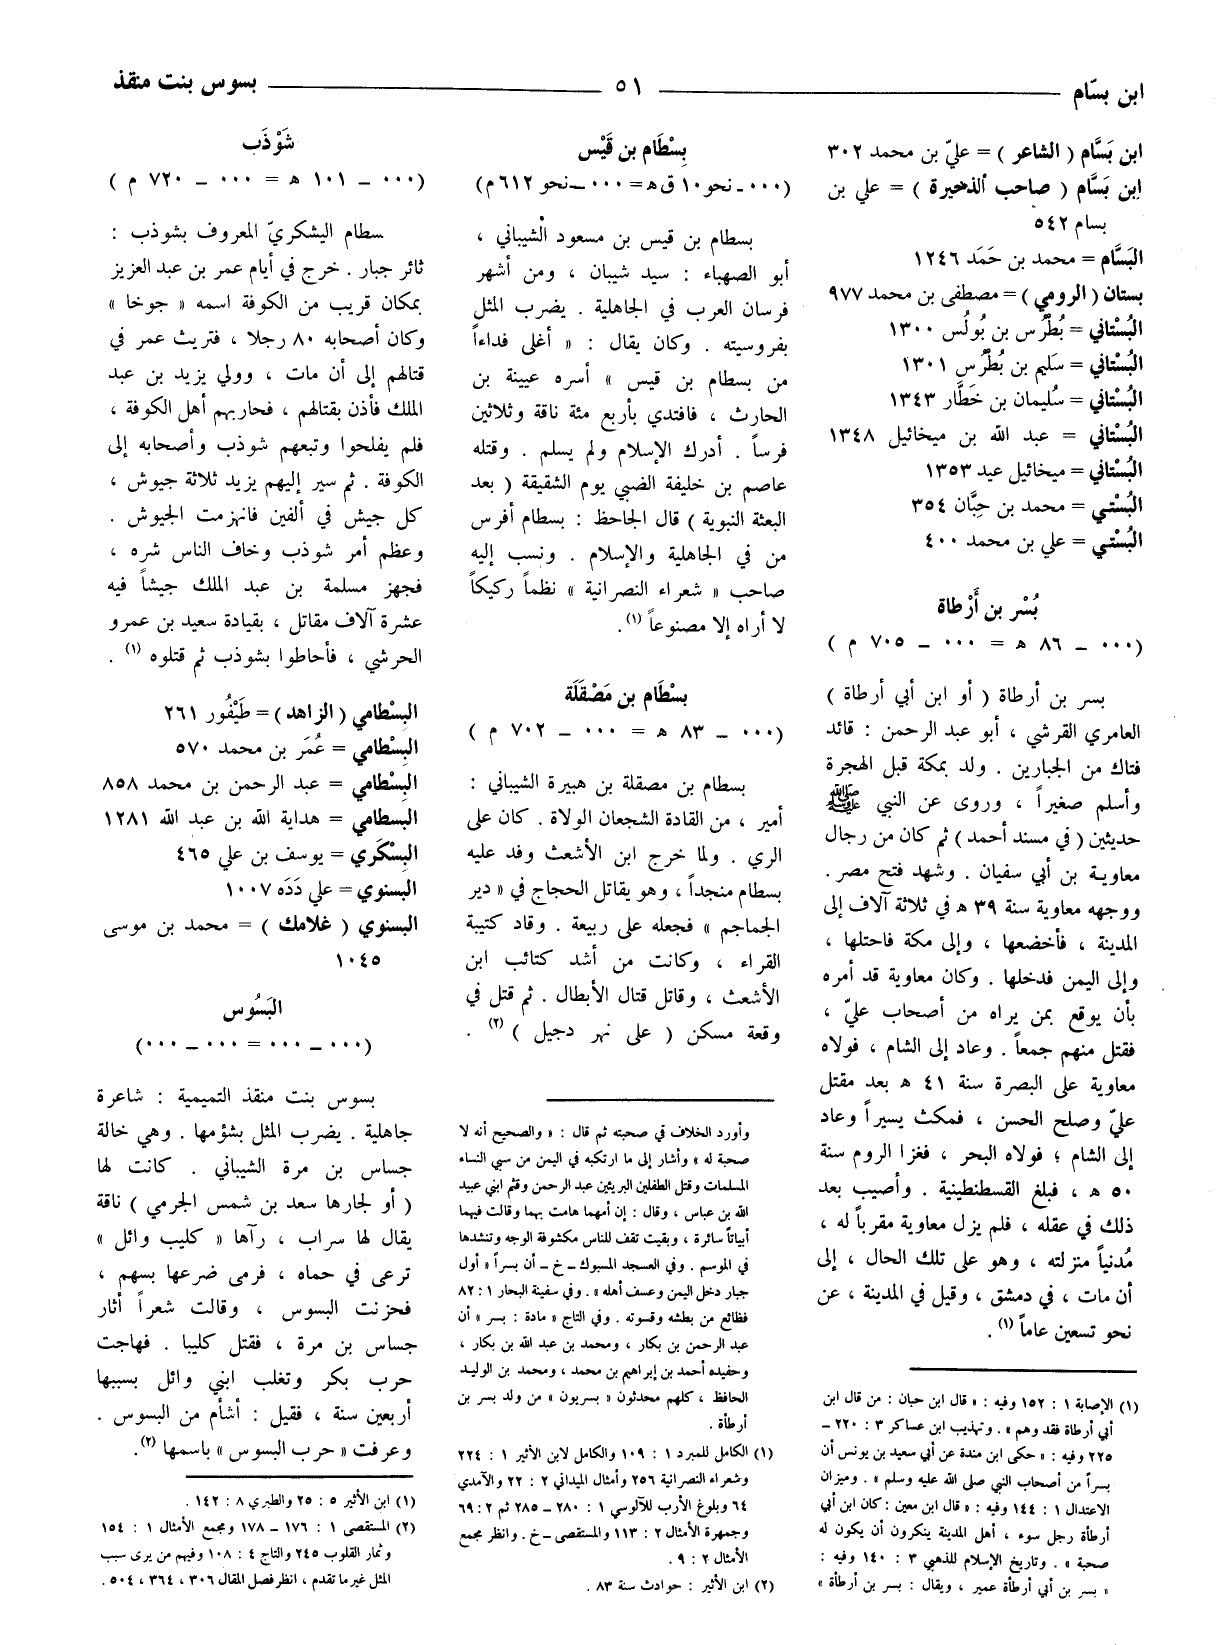 ابن بسّام
٥١
بسوس بنت منقذ
ابن بَسَّام ( الشاعر ) = عليّ بن محمد ٣٠٢
ابن بَسَّام ( صاحب الذخيرة ) = علي بن
بسام ٥٤٢
البَسَّام = محمد بن حَمَد ١٢٤٦
بستان ( الرومي ) = مصطفى بن محمد ٩٧٧
البُسْتاني = بُطْرُس بن بُولُس ١٣٠٠
البُسْتاني = سَليم بن بُطْرُس ١٣٠١
البُسْتاني = سُليمان بن خَطَّار ١٣٤٣
البُسْتاني = عبد الله بن ميخائيل ١٣٤٨
البُسْتاني = ميخائيل عيد ١٣٥٣
البُسْتي = محمد بن حِبَّان ٣٥٤
البُسْتي = علي بن محمد ٤٠٠
بُسْر بن أَرْطاة
(٠٠٠ – ٨٦ ه = ٠٠٠ – ٧٠٥ م )
بسر بن أرطاة ( أو ابن أبي أرطاة )
العامري القرشي ، أبو عبد الرحمن : قائد
فتاك من الجبارين . ولد بمكة قبل الهجرة
وأسلم صغيراً ، وروى عن النبي ﷺ
حديثين ( في مسند أحمد ) ثم كان من رجال
معاوية بن أبي سفيان . وشهد فتح مصر .
ووجهه معاوية سنة ٣٩ ه في ثلاثة آلاف إلى
المدينة ، فأخضعها ، وإلى مكة فاحتلها ،
وإلى اليمن فدخلها . وكان معاوية قد أمره
بأن يوقع بمن يراه من أصحاب عليّ ،
فقتل منهم جمعاً . وعاد إلى الشام ، فولاه
معاوية على البصرة سنة ٤١ ه بعد مقتل
عليّ وصلح الحسن ، فمكث يسيراً وعاد
إلى الشام ؛ فولاه البحر ، فغزا الروم سنة
٥٠ ه ، فبلغ القسطنطينية . وأصيب بعد
ذلك في عقله ، فلم يزل معاوية مقرباً له ،
مُدنياً منزلته ، وهو على تلك الحال ، إلى
أن مات ، في دمشق ، وقيل في المدينة ، عن
نحو تسعين عاماً (١).
(١) الإصابة ١ : ١٥٢ وفيه : « قال ابن حبان : من قال ابن
أبي أرطاة فقد وهم » . وتهذيب ابن عساكر ٣ : ٢٢٠ –
٢٢٥ وفيه : « حكى ابن مندة عن أبي سعيد بن يونس أن
بسراً من أصحاب النبي صلى الله عليه وسلم » . وميزان
الاعتدال ١ : ١٤٤ وفيه : « قال ابن معين : كان ابن أبي
أرطأة رجل سوء ، أهل المدينة ينكرون أن يكون له
صحبة » . وتاريخ الإسلام للذهبي ٣ : ١٤٠ وفيه :
« بسر بن أبي أرطأة عمير ، ويقال : بسر بن أرطأة »
بِسْطَام بن قَيْس
(٠٠٠ - نحو ١٠ ق ه = ٠٠٠ – نحو ٦١٢ م)
بسطام بن قيس بن مسعود الشيباني ،
أبو الصهباء : سيد شيبان ، ومن أشهر
فرسان العرب في الجاهلية . يضرب المثل
بفروسيته . وكان يقال : « أغلى فداءاً
من بسطام بن قيس » أسره عيينة بن
الحارث ، فافتدي بأربع مئة ناقة وثلاثين
فرساً . أدرك الإسلام ولم يسلم . وقتله
عاصم بن خليفة الضبي يوم الشقيقة ( بعد
البعثة النبوية ) قال الجاحظ : بسطام أفرس
من في الجاهلية والإسلام . ونسب إليه
صاحب « شعراء النصرانية » نظماً ركيكاً
لا أراه إلا مصنوعاً (١).
بِسْطَام بن مَصْقَلَة
(٠٠٠ – ٨٣ ه = ٠٠٠ – ٧٠٢ م )
بسطام بن مصقلة بن هبيرة الشيباني :
أمير ، من القادة الشجعان الولاة . كان على
الري . ولما خرج ابن الأشعث وفد عليه
بسطام منجداً ، وهو يقاتل الحجاج في « دير
الجماجم » فجعله على ربيعة . وقاد كتيبة
القراء ، وكانت من أشد كتائب ابن
الأشعث ، وقاتل قتال الأبطال . ثم قتل في
وقعة مسكن ( على نهر دجيل ) (٢) .
وأورد الخلاف في صحبته ثم قال : « والصحيح أنه لا
صحبة له » وأشار إلى ما ارتكبه في اليمن من سبي النساء
المسلمات وقتل الطفلين البريئين عبد الرحمن وقثم ابني عبيد
الله بن عباس ، وقال : إن أمهما هامت بهما وقالت فيهما
أبياتاً سائرة ، وبقيت تقف للناس مكشوفة الوجه وتنشدها
في الموسم . وفي العسجد المسبوك – خ – أن بسراً « أول
جبار دخل اليمن وعسف أهله » . وفي سفينة البحار ١ : ٨٢
فظائع من بطشه وقسوته . وفي التاج « مادة : بسر » أن
عبد الرحمن بن بكار ، ومحمد بن عبد الله بن بكار ،
وحفيده أحمد بن إبراهيم بن محمد ، ومحمد بن الوليد
الحافظ ، كلهم محدثون « بسريون » من ولد بسر بن
أرطأة .
(١) الكامل للمبرد ١ : ١٠٩ والكامل لابن الأثير ١ : ٢٢٤
وشعراء النصرانية ٢٥٦ وأمثال الميداني ٢ : ٢٢ والآمدي
٦٤ وبلوغ الأرب للآلوسي ١ : ٢٨٠ – ٢٨٥ ثم ٢ : ٦٩
وجمهرة الأمثال ٢ : ١١٣ والمستقصى – خ . وانظر مجمع
الأمثال ٢ : ٩ .
(٢) ابن الأثير : حوادث سنة ٨٣ .
شَوْذَب
(٠٠٠ – ١٠١ ه = ٠٠٠ – ٧٢٠ م )
سطام اليشكريّ المعروف بشوذب :
ثائر جبار . خرج في أيام عمر بن عبد العزيز
بمكان قريب من الكوفة اسمه « جوخا »
وكان أصحابه ٨٠ رجلا ، فتريث عمر في
قتالهم إلى أن مات ، وولي يزيد بن عبد
الملك فأذن بقتالهم ، فحاربهم أهل الكوفة ،
فلم يفلحوا وتبعهم شوذب وأصحابه إلى
الكوفة . ثم سير إليهم يزيد ثلاثة جيوش ،
كل جيش في ألفين فانهزمت الجيوش .
وعظم أمر شوذب وخاف الناس شره ،
فجهز مسلمة بن عبد الملك جيشاً فيه
عشرة آلاف مقاتل ، بقيادة سعيد بن عمرو
الحرشي ، فأحاطوا بشوذب ثم قتلوه (١) .
البِسْطامي ( الزاهد ) = طَيْفُور ٢٦١
البِسْطامي = عُمَر بن محمد ٥٧٠
البِسْطامي = عبد الرحمن بن محمد ٨٥٨
البسطامي = هداية الله بن عبد الله ١٢٨١
البِسْكَري = يوسف بن علي ٤٦٥
البسنوي = علي دَدَه ١٠٠٧
البسنوي ( غلامك ) = محمد بن موسى
١٠٤٥
البَسُوس
(٠٠٠ – ٠٠٠ = ٠٠٠ – ٠٠٠)
بسوس بنت منقذ التميمية : شاعرة
جاهلية . يضرب المثل بشؤمها . وهي خالة
جساس بن مرة الشيباني . كانت لها
( أو لجارها سعد بن شمس الجرمي ) ناقة
يقال لها سراب ، رآها « كليب وائل »
ترعى في حماه ، فرمى ضرعها بسهم ،
فحزنت البسوس ، وقالت شعراً أثار
جساس بن مرة ، فقتل كليبا . فهاجت
حرب بكر وتغلب ابني وائل بسببها
أربعين سنة ، فقيل : أشأم من البسوس .
وعرفت « حرب البسوس » باسمها (٢).
(١) ابن الأثير ٥ : ٢٥ والطبري ٨ : ١٤٢ .
(٢) المستقصى ١ : ١٧٦ – ١٧٨ ومجمع الأمثال ١ : ١٥٤
وثمار القلوب ٢٤٥ والتاج ٤ : ١٠٨ وفيهم من يرى سبب
المثل غير ما تقدم ، انظر فصل المقال ٣٠٦ ، ٣٦٤ ، ٥٠٤ .